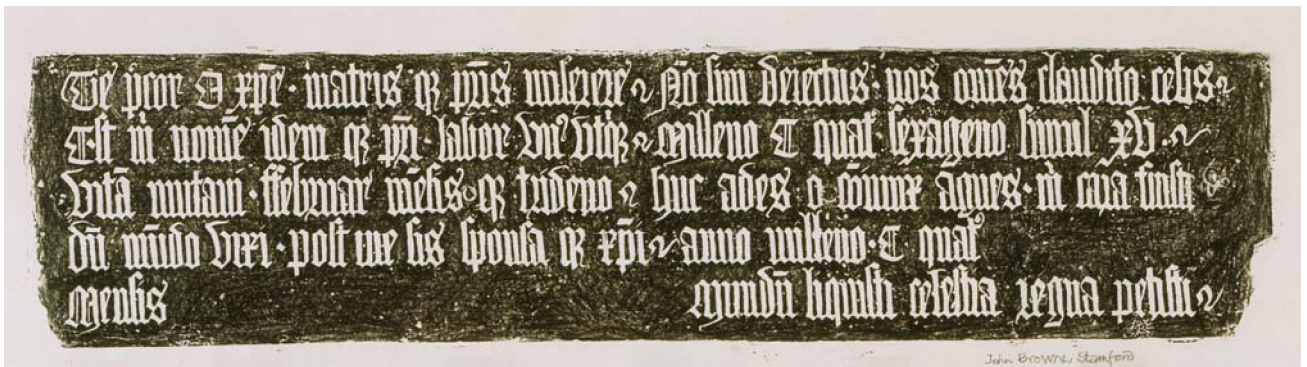 Te p̄cor O xp̄e · matris · q̨ p̄ris miserere ~ Nō sim deiectus · nos om̄es claudito celis ~
Est m̄ nomē idem q̨ p̄ri · labor vn9 vtq̨ ~ Milleno C quat̾ · sexageno simul xv · ~
Vitā mutaui · ffebruar mēsis · q̨ trideno ~ huc ades · o cōiunx āgnes · m̄ cara fuisti
dū mūdo vixi · post me sis sponsa q̨ xp̄i ~ anno milleno · C quat̾
Mensis mundū liquisti celestia regna petisti ~
John Browne, Stamford